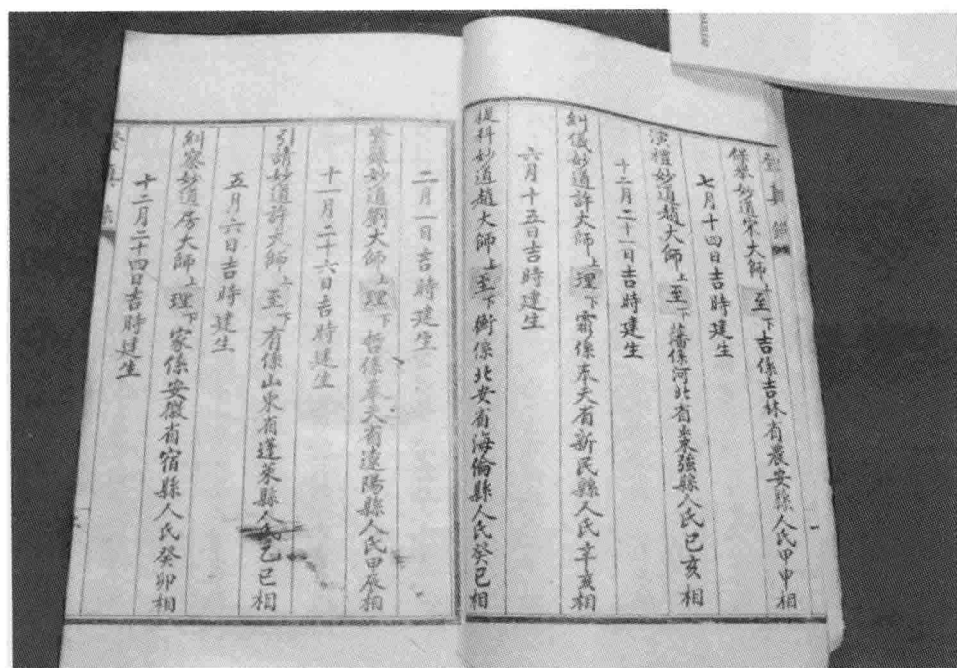 登真籙
保舉妙道宋大師上至下吉係吉林省農安縣人氏甲申相
七月十四日吉時建生
演禮妙道趙大師上至下藩係河北省棗強縣人氏己亥相
十二月二十一日吉時建生
糾儀妙道許大師上理下霖係奉天省新民縣人氏辛亥相
六月十五日吉時建生
提科妙道趙大師上至下衡係北安省海倫縣人氏癸巳相
二月一日吉時建生
登籙妙道劉大師上理下哲係奉天省遼陽縣人氏甲辰相
十一月二十六日吉時建生
引請妙道許大師上至下有係山東省蓬萊縣人氏乙巳相
五月六日吉時建生
糾察妙道房大師上理下家係安徽省宿縣人氏癸卯相
十二月二十四日吉時建生
登真